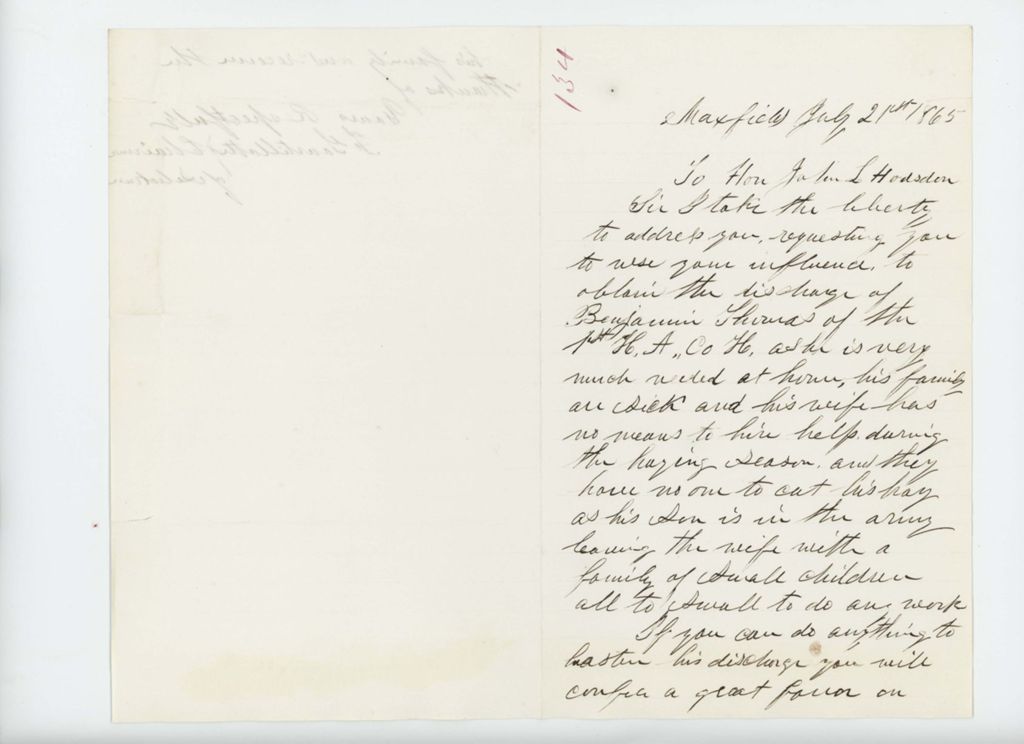 134
Maxfield July 21st 1865
To Hon John L Hodsdon
Sir I take the liberty
to address you, requesting you
to use your influence, to
obtain the discharge of
Benjamin Thomas of the
1st H. A., Co H, as he is very
much needed at home, his family
are sick and his wife has
no means to hire help during
the haying season. and they
have no one to cut his hay
as his son is in the army
leaving the wife with a
family of small children
all to small to do any work
If you can do anything to
hasten his discharge you will
confer a great favor on
his family and receive the
thanks of
Yours Respectfully
Chairman
of selectmen